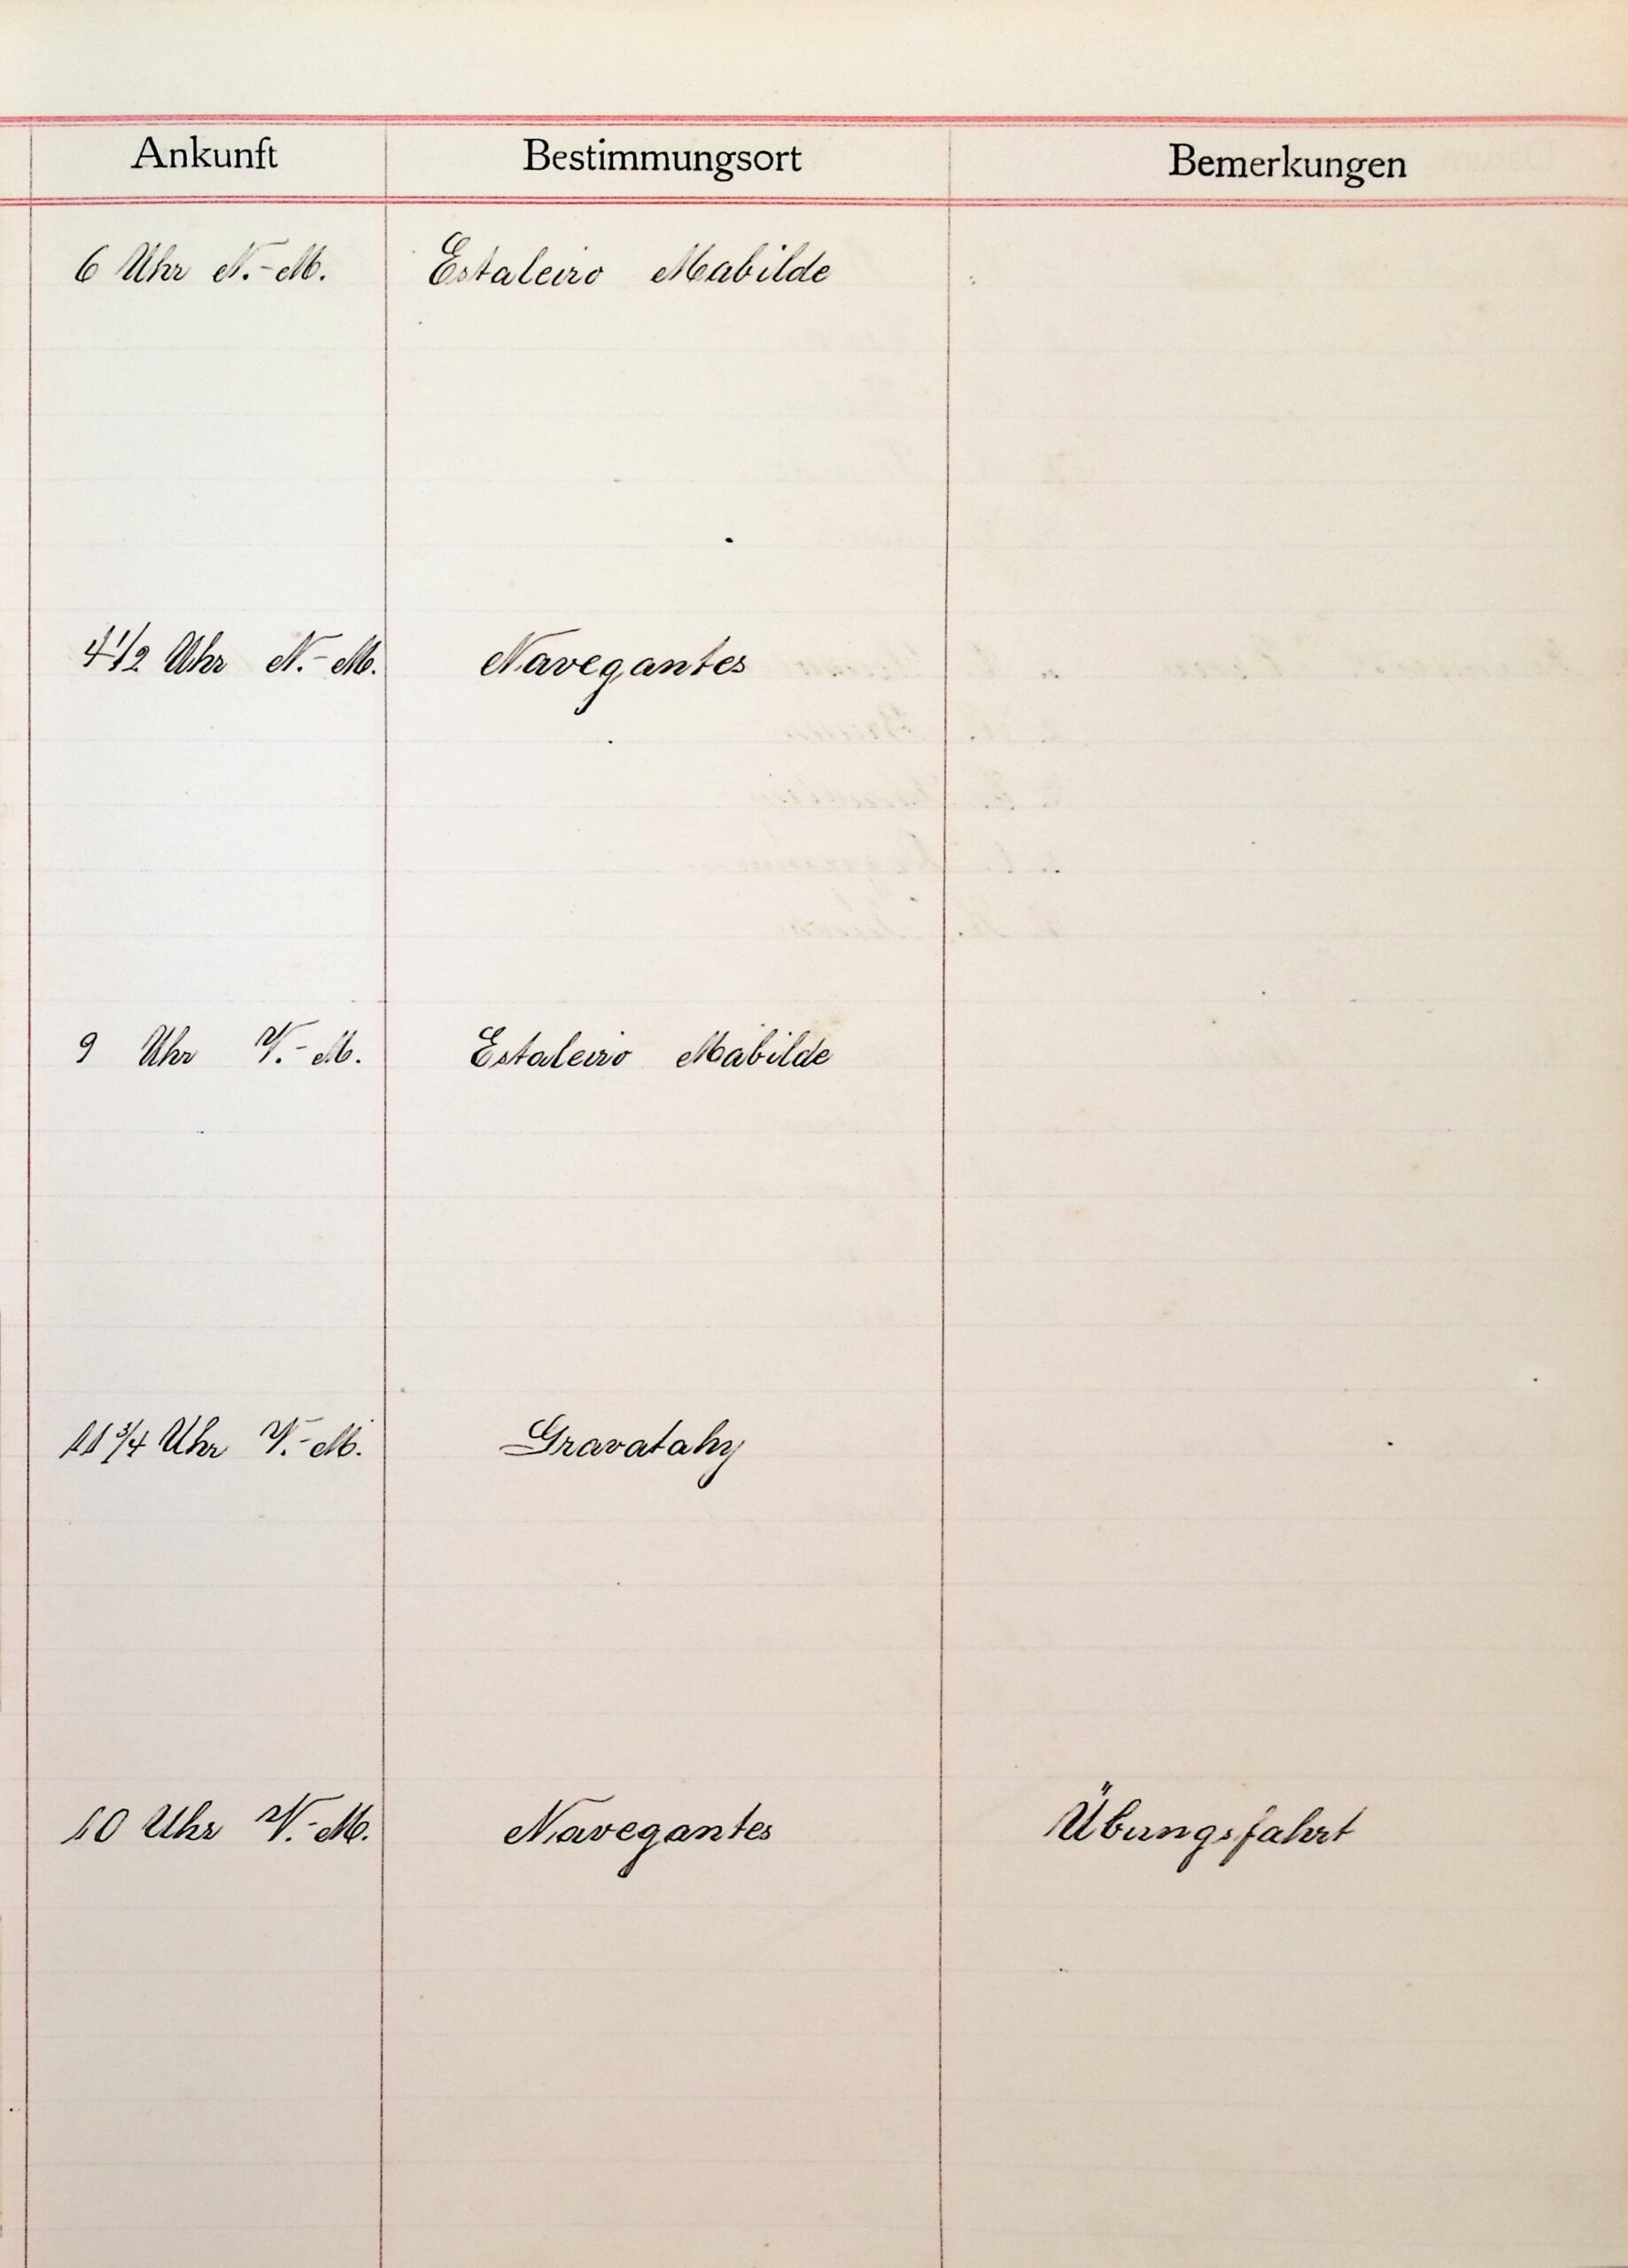 Ankunft Bestimmungsort Bemerkungen
6 Uhr N.-M. Estaleiro Mabilde
4 1/2 Uhr N.-M. Navegantes
9 Uhr V.-M. Estaleiro Mabilde
11 3/4 Uhr V.-M. Gravatahy
10 Uhr V.-M. Navegantes Übungsfahrt